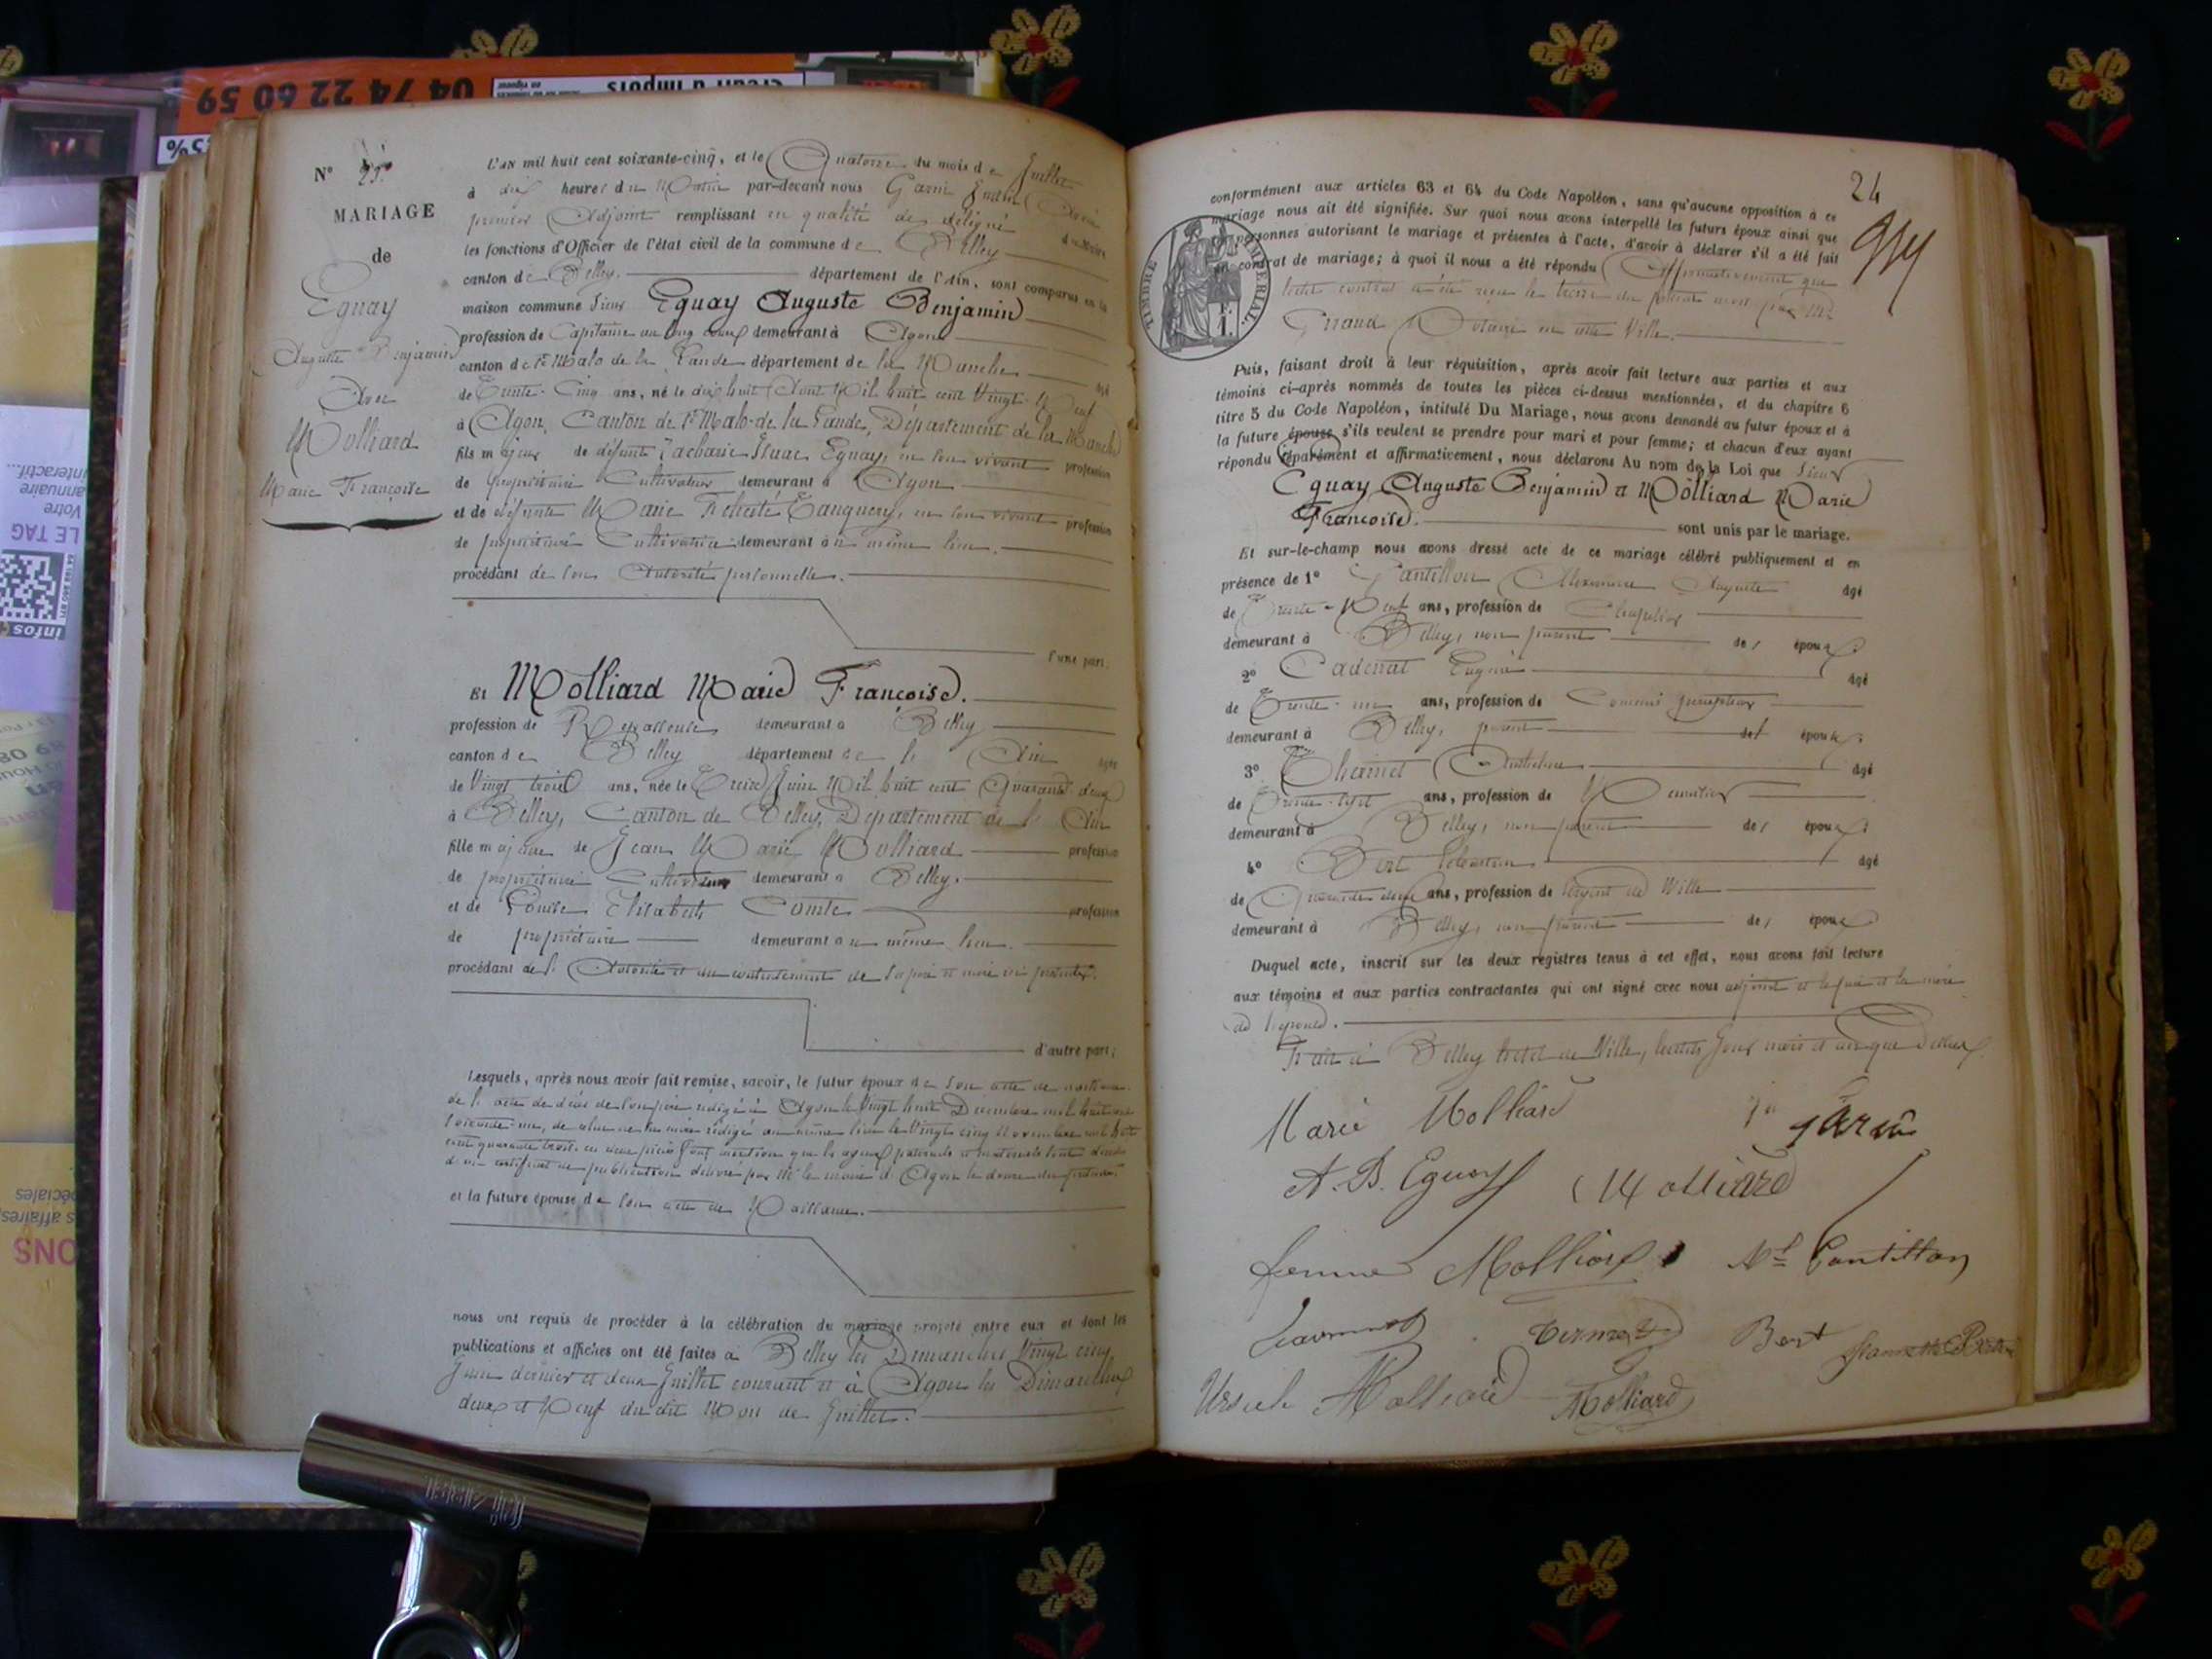 04 74 22 60 59
N° 23.
MARIAGE
de
Eguay
Auguste Benjamin
Avec
Molliard
Marie Françoise
L'AN mil huit cent soixante-cinq, et le Quatorze du mois de Juillet
à dix heures du Matin par-devant nous Garin
premier Adjoint remplissant en qualité de délégué
les fonctions d'Officier de l'état civil de la commune de Belley
canton de Belley. département de l'Ain, sont comparus en la
maison commune Sieur Eguay Auguste Benjamin
profession de Capitaine au long cours demeurant à Agon
canton de St Malo de la Lande département de la Manche âgé
de Trente-Cinq ans, né le dix huit Août Mil huit cent Vingt-Neuf
à Agon, Canton de St Malo-de la Lande, Département de la Manche
fils majeur de défunt Zacharie Isaac Eguay, en son vivant profession
de propriétaire Cultivateur demeurant à Agon
et de défunte Marie Félicité Tanquery, en son vivant profession
de propriétaire Cultivatrice demeurant au même lieu.
procédant de son Autorité personnelle.
d'une part.
Et Molliard Marie Françoise.
profession de Repasseuse demeurant à Belley
canton de Belley département de l'Ain âgée
de Vingt trois ans, née le Treize Juin Mil huit cent Quarante deux
à Belley, Canton de Belley, Département de l'Ain
fille majeure de Jean Marie Molliard profession
de propriétaire Cultivateur demeurant à Belley.
et de Louise Elisabeth Comte profession
de propriétaire demeurant au même lieu.
procédant de l'Autorité et du consentement de ses père et mère ici présents.
d'autre part;
Lesquels, après nous avoir fait remise, savoir, le futur époux de son acte de naissance
de l'acte de décès de son père rédigé à Agon le Vingt huit Décembre mil huit cent
soixante-un, de celui de sa mère rédigé au même lieu le Vingt cinq Novembre mil huit
cent quarante trois
certificat de publication délivré par Mr le maire d'Agon
et la future épouse de son acte de Naissance.
nous ont requis de procéder à la célébration du mariage projeté entre eux et dont les
publications et affiches ont été faites à Belley les Dimanches Vingt cinq
Juin dernier et deux Juillet courant et à Agon les Dimanches
deux et Neuf du dit Mois de Juillet.
24
conformément aux articles 63 et 64 du Code Napoléon, sans qu'aucune opposition à ce
mariage nous ait été signifiée. Sur quoi nous avons interpellé les futurs époux ainsi que
les personnes autorisant le mariage et présentes à l'acte, d'avoir à déclarer s'il a été fait
un contrat de mariage; à quoi il nous a été répondu Affirmativement que
ledit contrat a été reçu le treize du présent mois par Me
Giraud Notaire en cette Ville.
TIMBRE IMPERIAL
Puis, faisant droit à leur réquisition, après avoir fait lecture aux parties et aux
témoins ci-après nommés de toutes les pièces ci-dessus mentionnées, et du chapitre 6
titre 5 du Code Napoléon, intitulé Du Mariage, nous avons demandé au futur époux et à
la future épouse s'ils veulent se prendre pour mari et pour femme; et chacun d'eux ayant
répondu séparément et affirmativement, nous déclarons Au nom de la Loi que Sieur
Eguay Auguste Benjamin et Molliard Marie
Françoise. sont unis par le mariage.
Et sur-le-champ nous avons dressé acte de ce mariage célébré publiquement et en
présence de 1° Cantillon Auguste âgé
de Trente-Neuf ans, profession de Chapelier
demeurant à Belley, non parent des époux
2° Cadenat Eugène âgé
de Trente-un ans, profession de Commis
demeurant à Belley, parent de l'époux
3° Anthelme âgé
de Trente-sept ans, profession de Menuisier
demeurant à Belley, non parent des époux
4° Bert Sébastien âgé
de Quarante deux ans, profession de Sergent de Ville
demeurant à Belley, non parent des époux
Duquel acte, inscrit sur les deux registres tenus à cet effet, nous avons fait lecture
aux témoins et aux parties contractantes qui ont signé avec nous adjoint et le père et la mère
de l'épouse.
Fait à Belley hôtel de Ville, lesdits jour mois et an que dessus.
Marie Molliard
Garin
A. B. Eguay
Molliard
femme Molliard
Cantillon
Bert
Ursule Molliard
Molliard